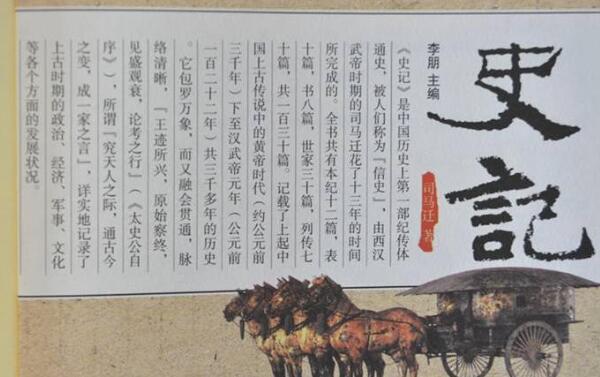 史記
司马迁 著
李朋 主编
《史记》是中国历史上第一部纪传体
通史，被人们称为“信史”，由西汉
武帝时期的司马迁花了十三年的时间
所完成的。全书共有本纪十二篇，表
十篇，书八篇，世家三十篇，列传七
十篇，共一百三十篇。记载了上起中
国上古传说中的黄帝时代（约公元前
三千年）下至汉武帝元年（公元前
一百二十二年）共三千多年的历史
。它包罗万象，而又融会贯通，脉
络清晰，“王迹所兴，原始察终，
见盛观衰，论考之行”（《太史公自
序》），所谓“究天人之际，通古今
之变，成一家之言”，详实地记录了
上古时期的政治、经济、军事、文化
等各个方面的发展状况。